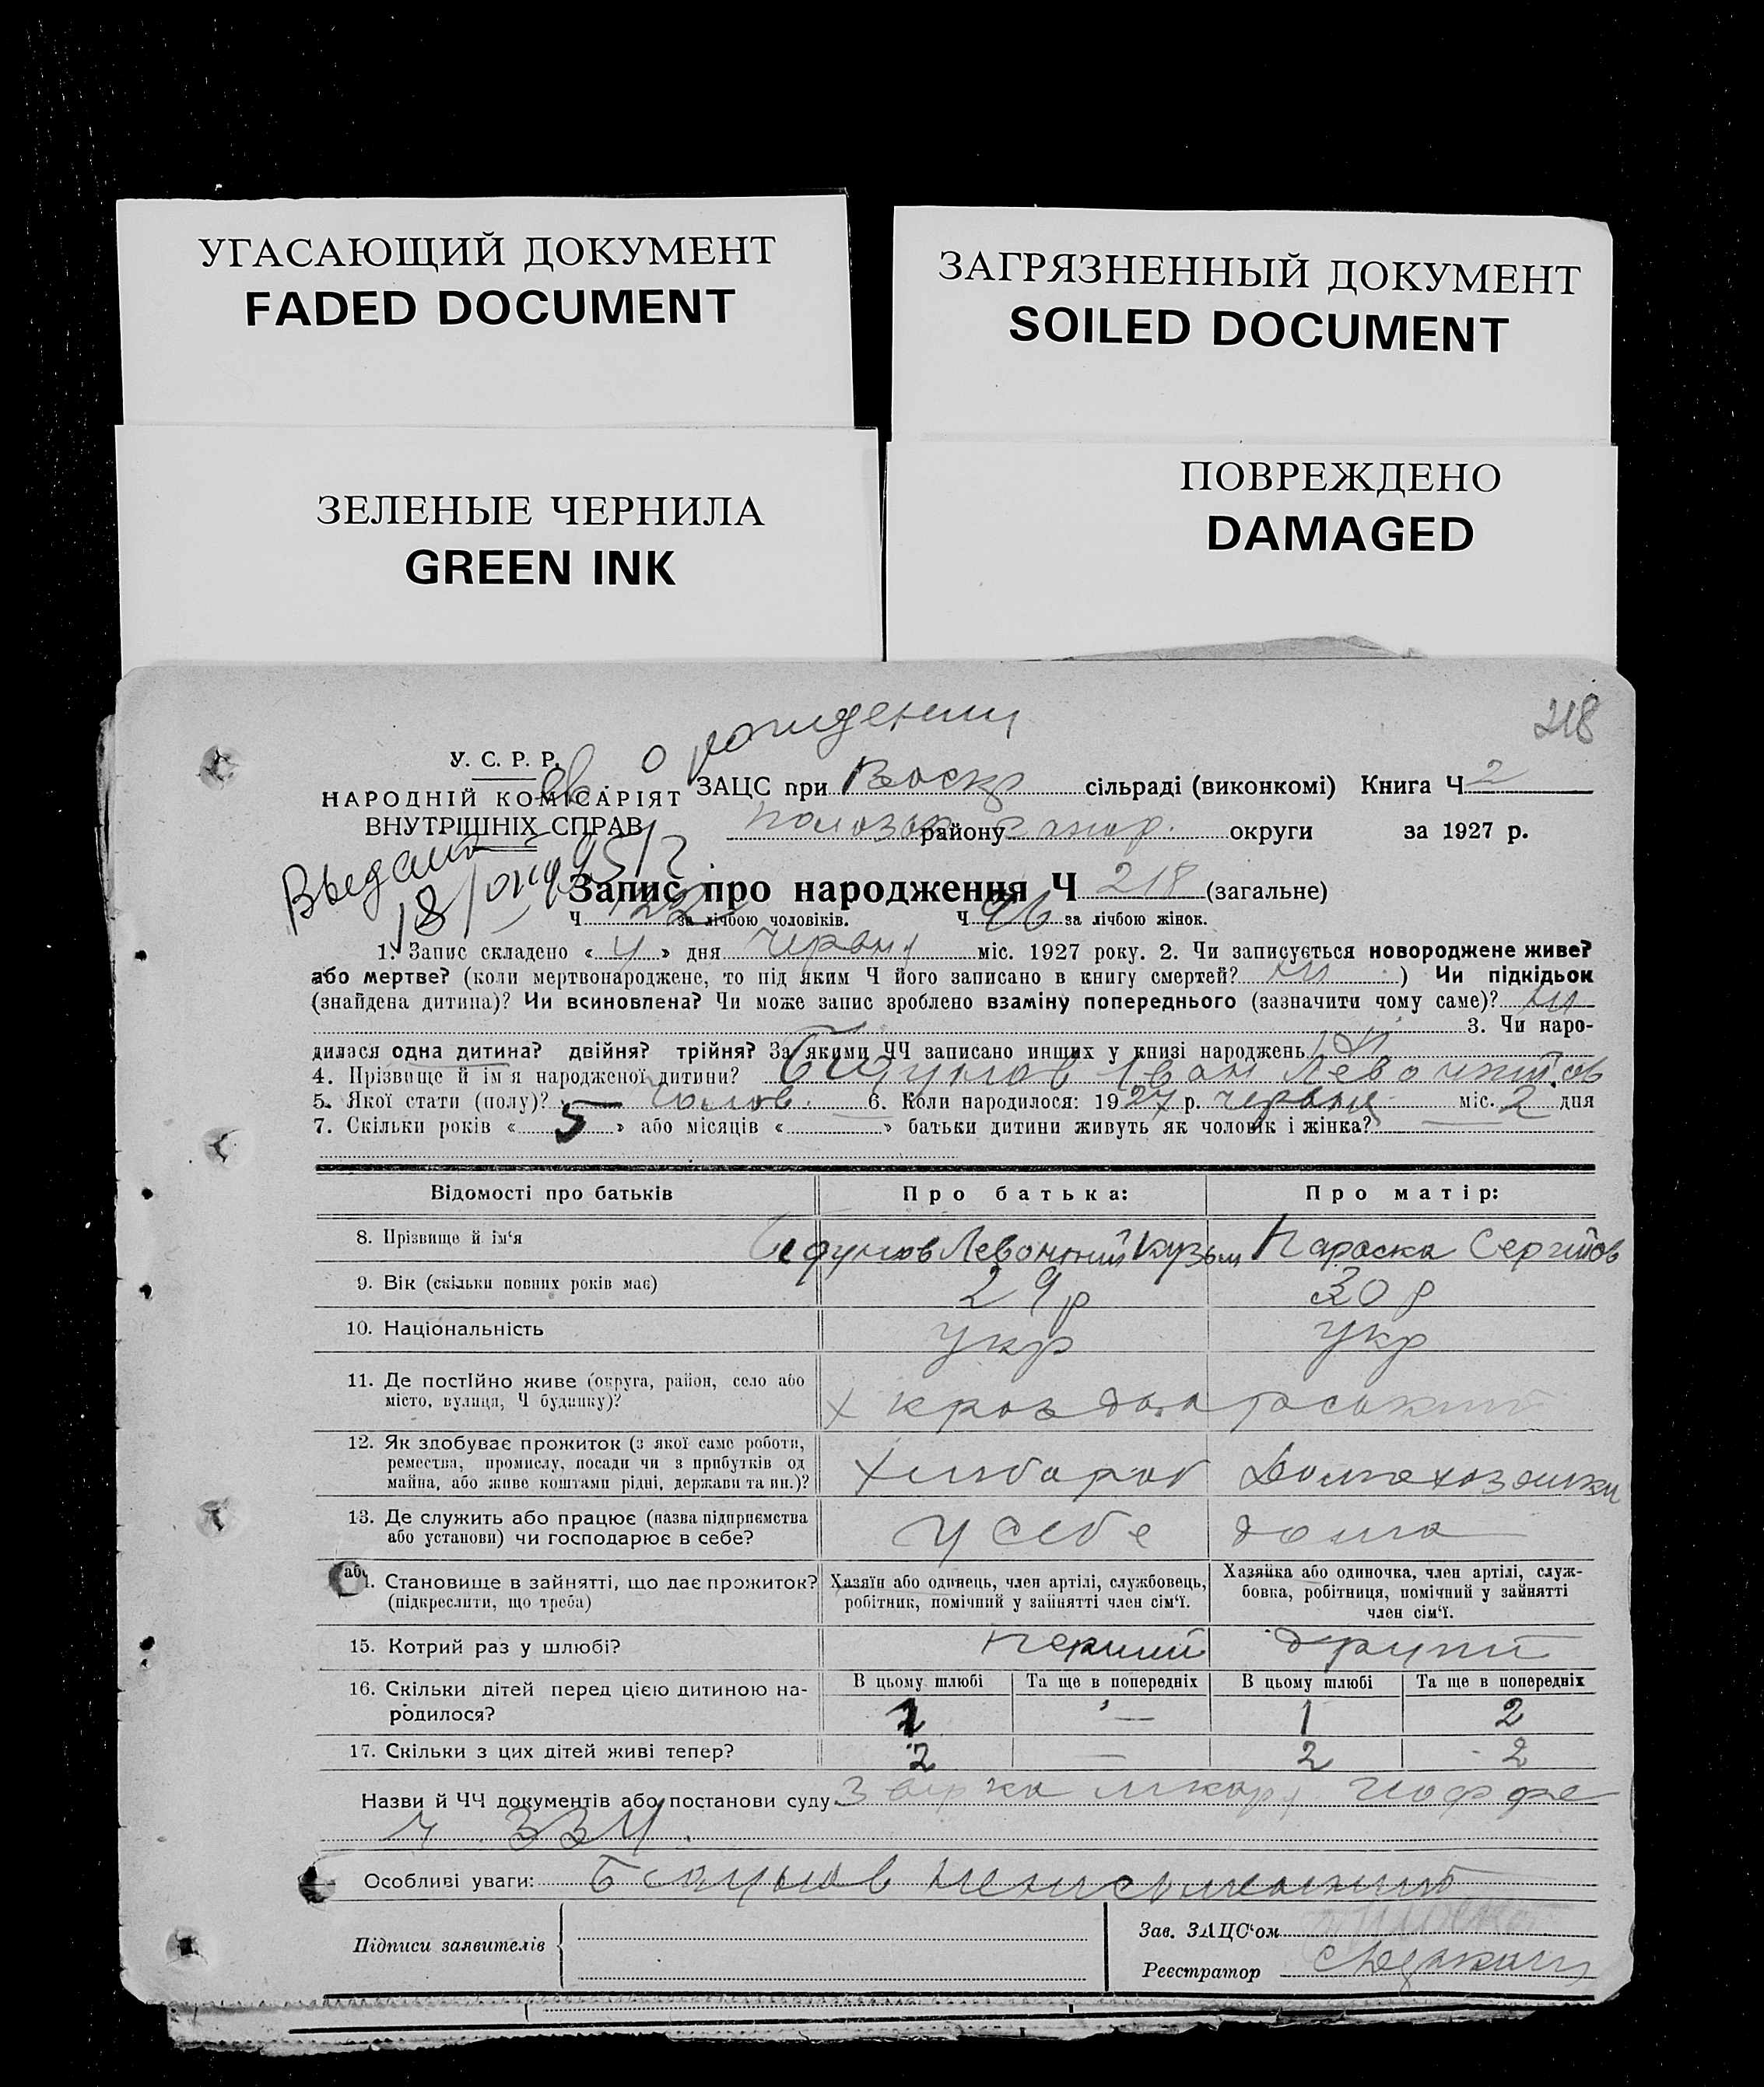 УГАСАЮЩИЙ ДОКУМЕНТ
FADED DOCUMENT
ЗАГРЯЗНЕННЫЙ ДОКУМЕНТ
SOILED DOCUMENT
ЗЕЛЕНЫЕ ЧЕРНИЛА
GREEN INK
ПОВРЕЖДЕНО
DAMAGED
218
св о рождении
У. С. Р. Р.
НАРОДНІЙ КОМІСАРІЯТ
ВНУТРІШНІХ СПРАВ
ЗАЦС при Воскр сільраді (виконкомі) Книга Ч 2
району округи за 1927 р.
Выдано
18/
Запис про народження Ч 218 (загальне)
Ч 122 за лічбою чоловіків. Ч 96 за лічбою жінок.
1. Запис складено « 4 » дня червня міс. 1927 року. 2. Чи записується новороджене живе?
або мертве? (коли мертвонароджене, то під яким Ч його записано в книгу смертей? ні ) Чи підкідьок
(знайдена дитина)? Чи всиновлена? Чи може запис зроблено взаміну попереднього (зазначити чому саме)? ні
3. Чи наро-
дилася одна дитина? двійня? трійня? За якими ЧЧ записано инших у книзі народжень
4. Прізвище й ім'я народженої дитини? Іван
5. Якої стати (полу)? чолов. 6. Коли народилося: 1927 р. червня міс. 2 дня
7. Скільки років « 5 » або місяців « — » батьки дитини живуть як чоловік і жінка?
Відомості про батьків Про батька: Про матір:
8. Прізвище й ім'я Левонтий Кузьм Параска Сергійов
9. Вік (скільки повних років має) 29 р 30 р
10. Національність укр укр
11. Де постійно живе (округа, район, село або
місто, вулиця, Ч будинку)? х
12. Як здобуває прожиток (з якої саме роботи,
ремества, промислу, посади чи з прибутків од
майна, або живе коштами рідні, держави та ин.)? Хлібороб Домохозяйки
13. Де служить або працює (назва підприємства
або установи) чи господарює в себе? у себе дома
Становище в зайнятті, що дає прожиток?
(підкреслити, що треба)
Хазяїн або одинець, член артілі, службовець,
робітник, помічний у зайнятті член сім'ї.
Хазяйка або одиночка, член артілі, служ-
бовка, робітниця, помічний у зайнятті
член сім'ї.
15. Котрий раз у шлюбі? перший другий
В цьому шлюбі Та ще в попередніх В цьому шлюбі Та ще в попередніх
16. Скільки дітей перед цією дитиною на-
родилося? — 1 2
17. Скільки з цих дітей живі тепер? 2 — 2 2
Назви й ЧЧ документів або постанови суду
ч 334.
Особливі уваги: неписьменний
Підписи заявителів
Зав. ЗАЦС'ом
Реєстратор